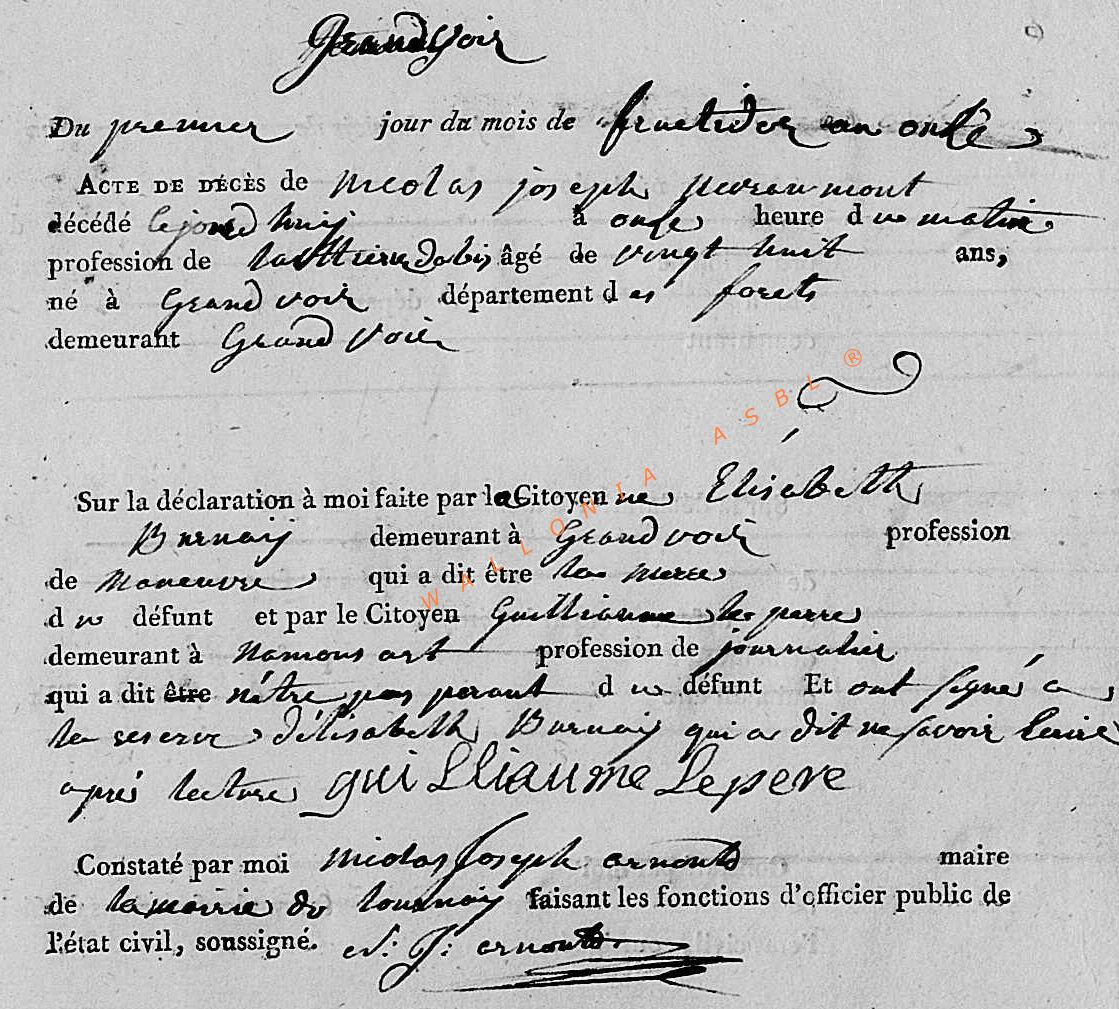 Grandvoir
Du premier jour du mois de fructidor an onse
ACTE DE DÉCÈS de nicolas joseph
décédé cejourd huij à onse heure du matin
profession de âgé de vingt huit ans,
né à Grandvoir département des forets
demeurant Grandvoir
Sur la déclaration à moi faite par la Citoyenne Elisabeth
Burnaij demeurant à Grandvoir profession
de Maneuvre qui a dit être la mere
du défunt et par le Citoyen Guilliaume le perre
demeurant à Namousart profession de journalier
qui a dit être n'étre pas parant du défunt Et ont signé a
la reserve d'élisabeth Burnaij qui a dit ne savoir Ecrire
aprés lecture guilliaume Lepere
Constaté par moi Nicolas Joseph arnould maire
de la mairie de tournaij faisant les fonctions d'officier public de
l'état civil, soussigné. N: J: arnould
WALLONIA ASBL ®